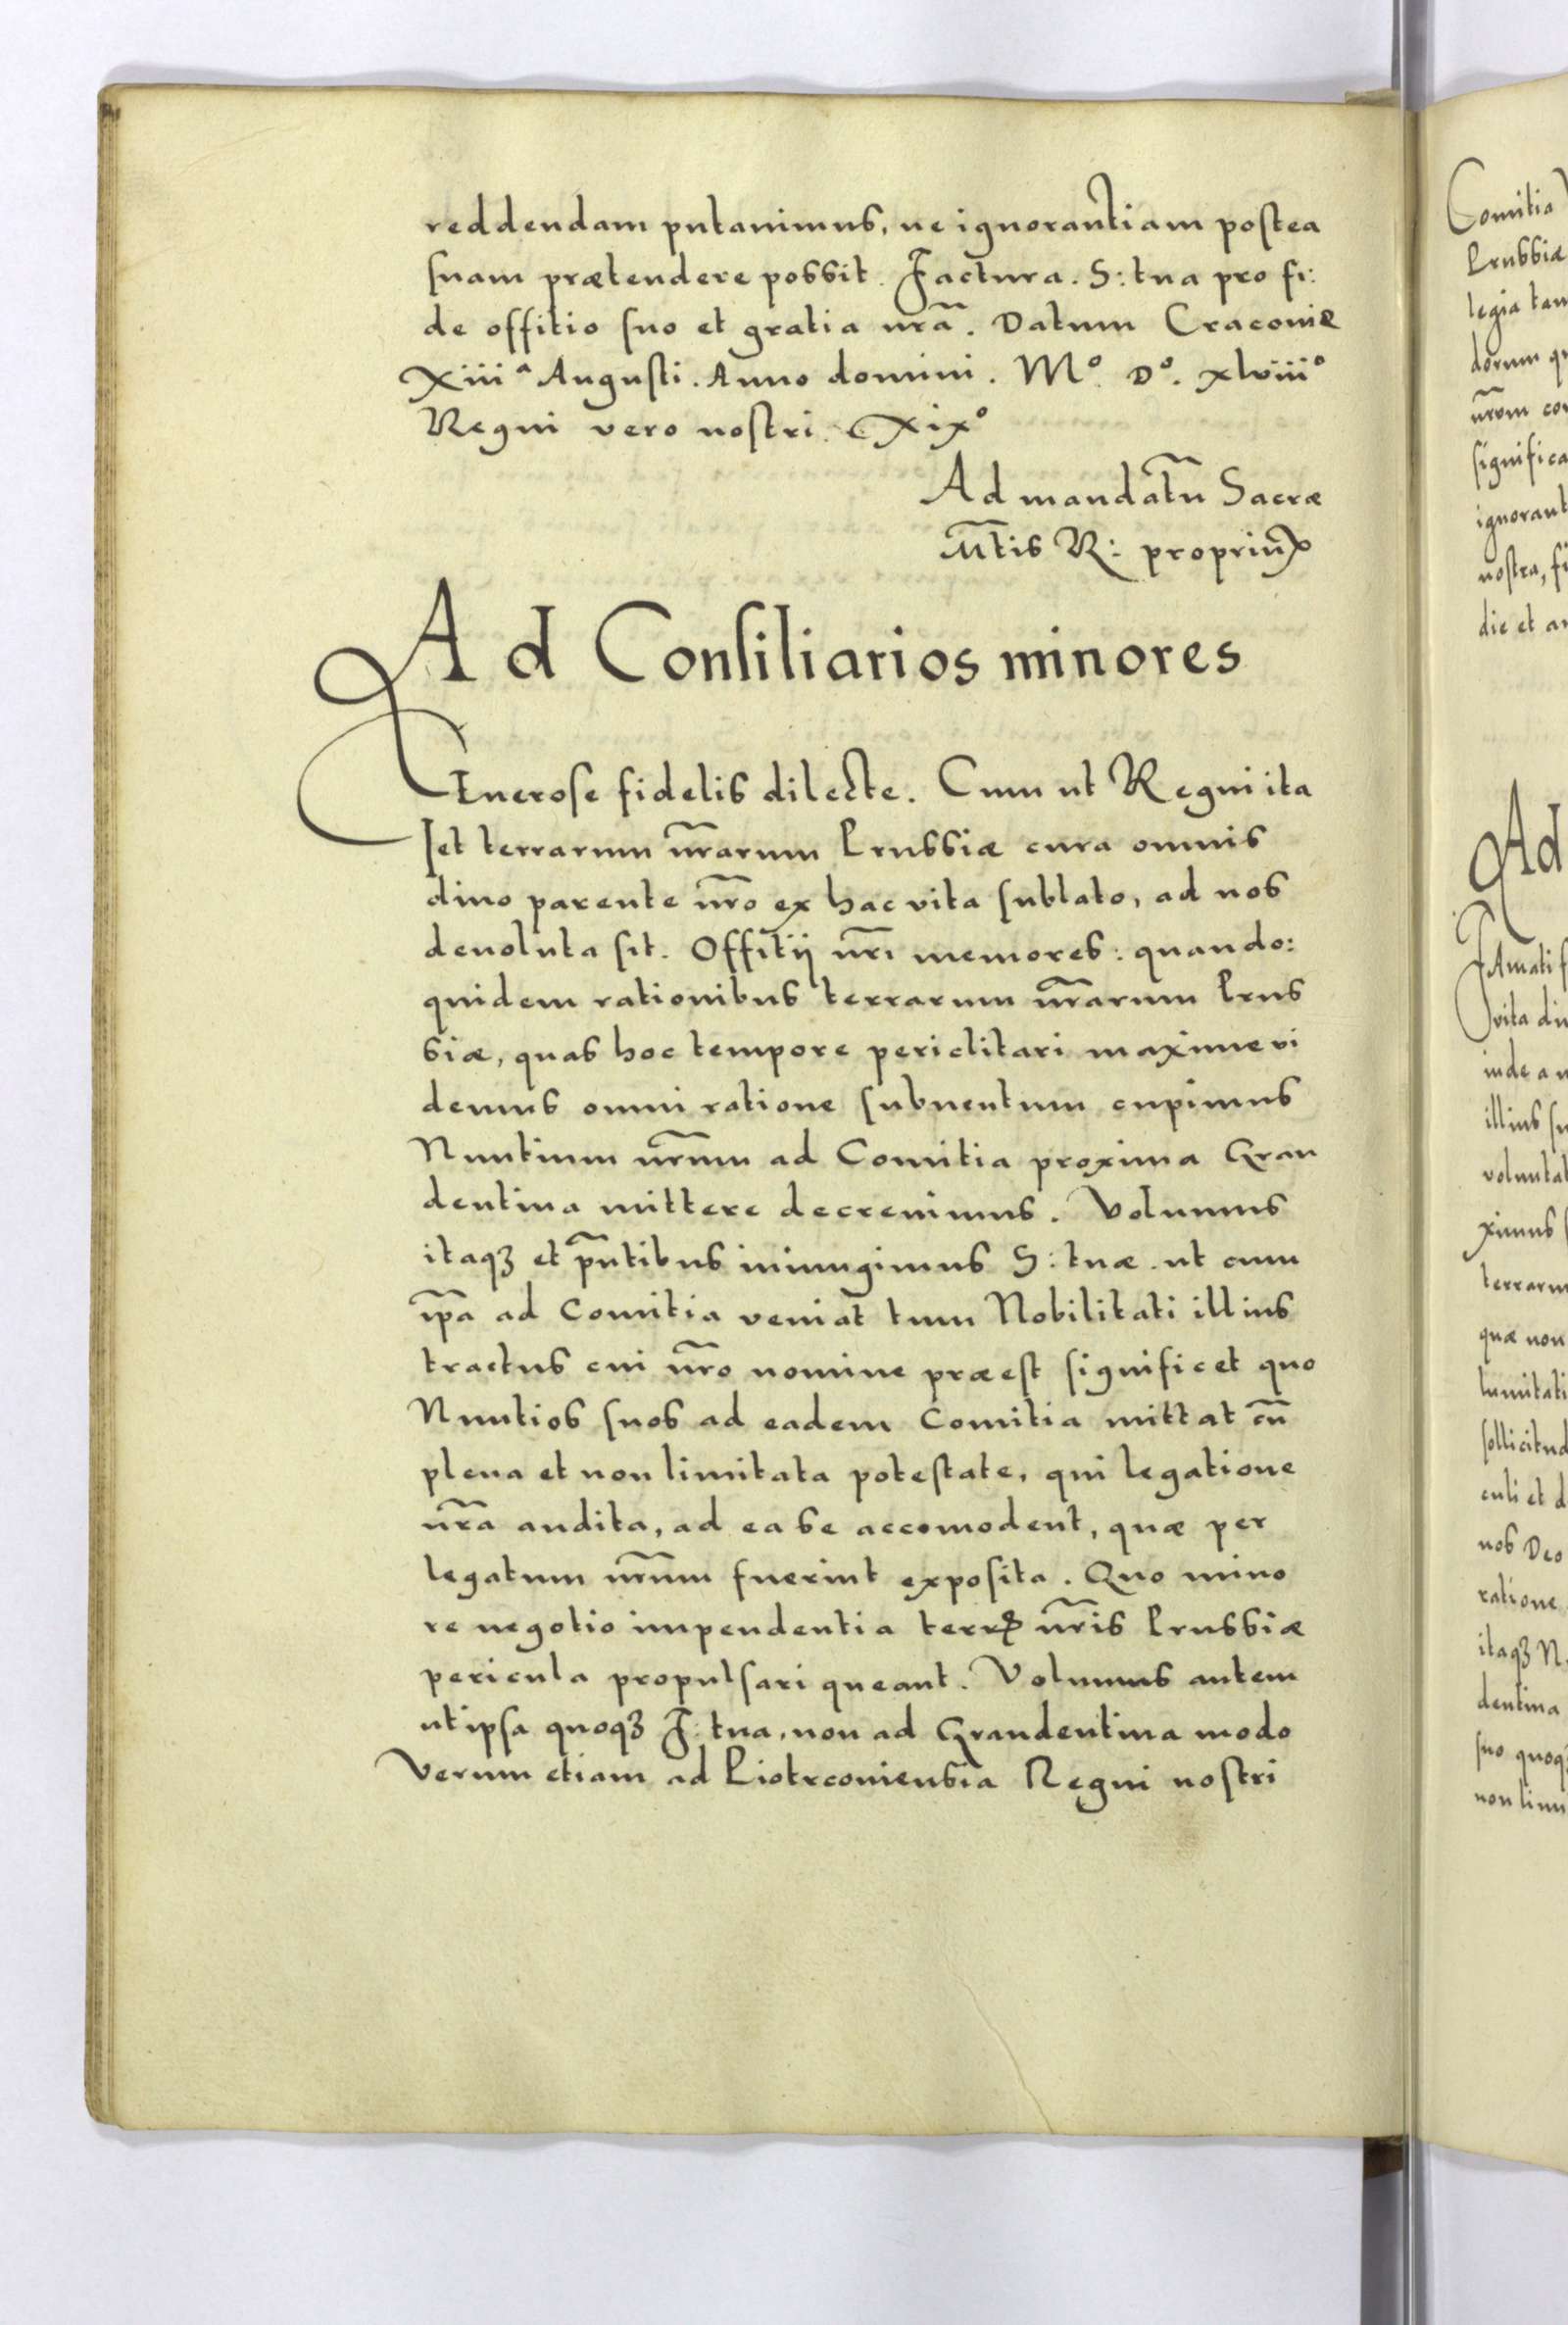 reddendam putauimus, ne ignorantiam postea
suam prætendere possit. Factura. S: tua pro fi:
de offitio suo et gratia nr̃a. Datum Cracouiæ
Xiiiª Augusti. Anno domini. Mº. Dº. xlviiiº
Regni vero nostri. Xixº
Ad mandatũ Sacræ
Mt̃is R: propriũ
Ad Consiliarios minores
Generose fidelis dilecte. Cum ut Regni ita
et terrarum nr̃arum Prussiæ cura omnis
diuo parente nr̃o ex hac vita sublato, ad nos
deuoluta sit. Offitij nr̃i memores: quando:
quidem rationibus terrarum nr̃arum Prus
siæ, quas hoc tempore periclitari maxime vi
demus omni ratione subuentum cupimus
Nuntium nr̃um ad Comitia proxima Grau
dentina mittere decreuimus. Volumus
itaqꝫ et pñtibus iniungimus S: tuæ. ut cum
ip̃a ad Comitia veniat tum Nobilitati illius
tractus cui nr̃o nomine præest significet quo
Nuntios suos ad eadem Comitia mittat cũ
plena et non limitata potestate, qui legatione
nr̃a audita, ad ea se accomodent, quæ per
legatum nr̃um fuerint exposita. Quo mino
re negotio impendentia terrꝭ nr̃is Prussiæ
pericula propulsari queant. Volumus autem
ut ipsa quoqꝫ F: tua, non ad Graudentina modo
Verum etiam ad Piotrcouiensia Regni nostri
Comitia
Prussiæ
legia tam
dorum
nr̃um
significa
ignorant
nostra,
die et
Ad
Amati
vita
inde a
illius
voluntat
ximus
terrarum
quæ non
lumitati
sollicitud
culi et
nos Deo
ratione
itaqꝫ
dentina
suo quoqꝫ
non